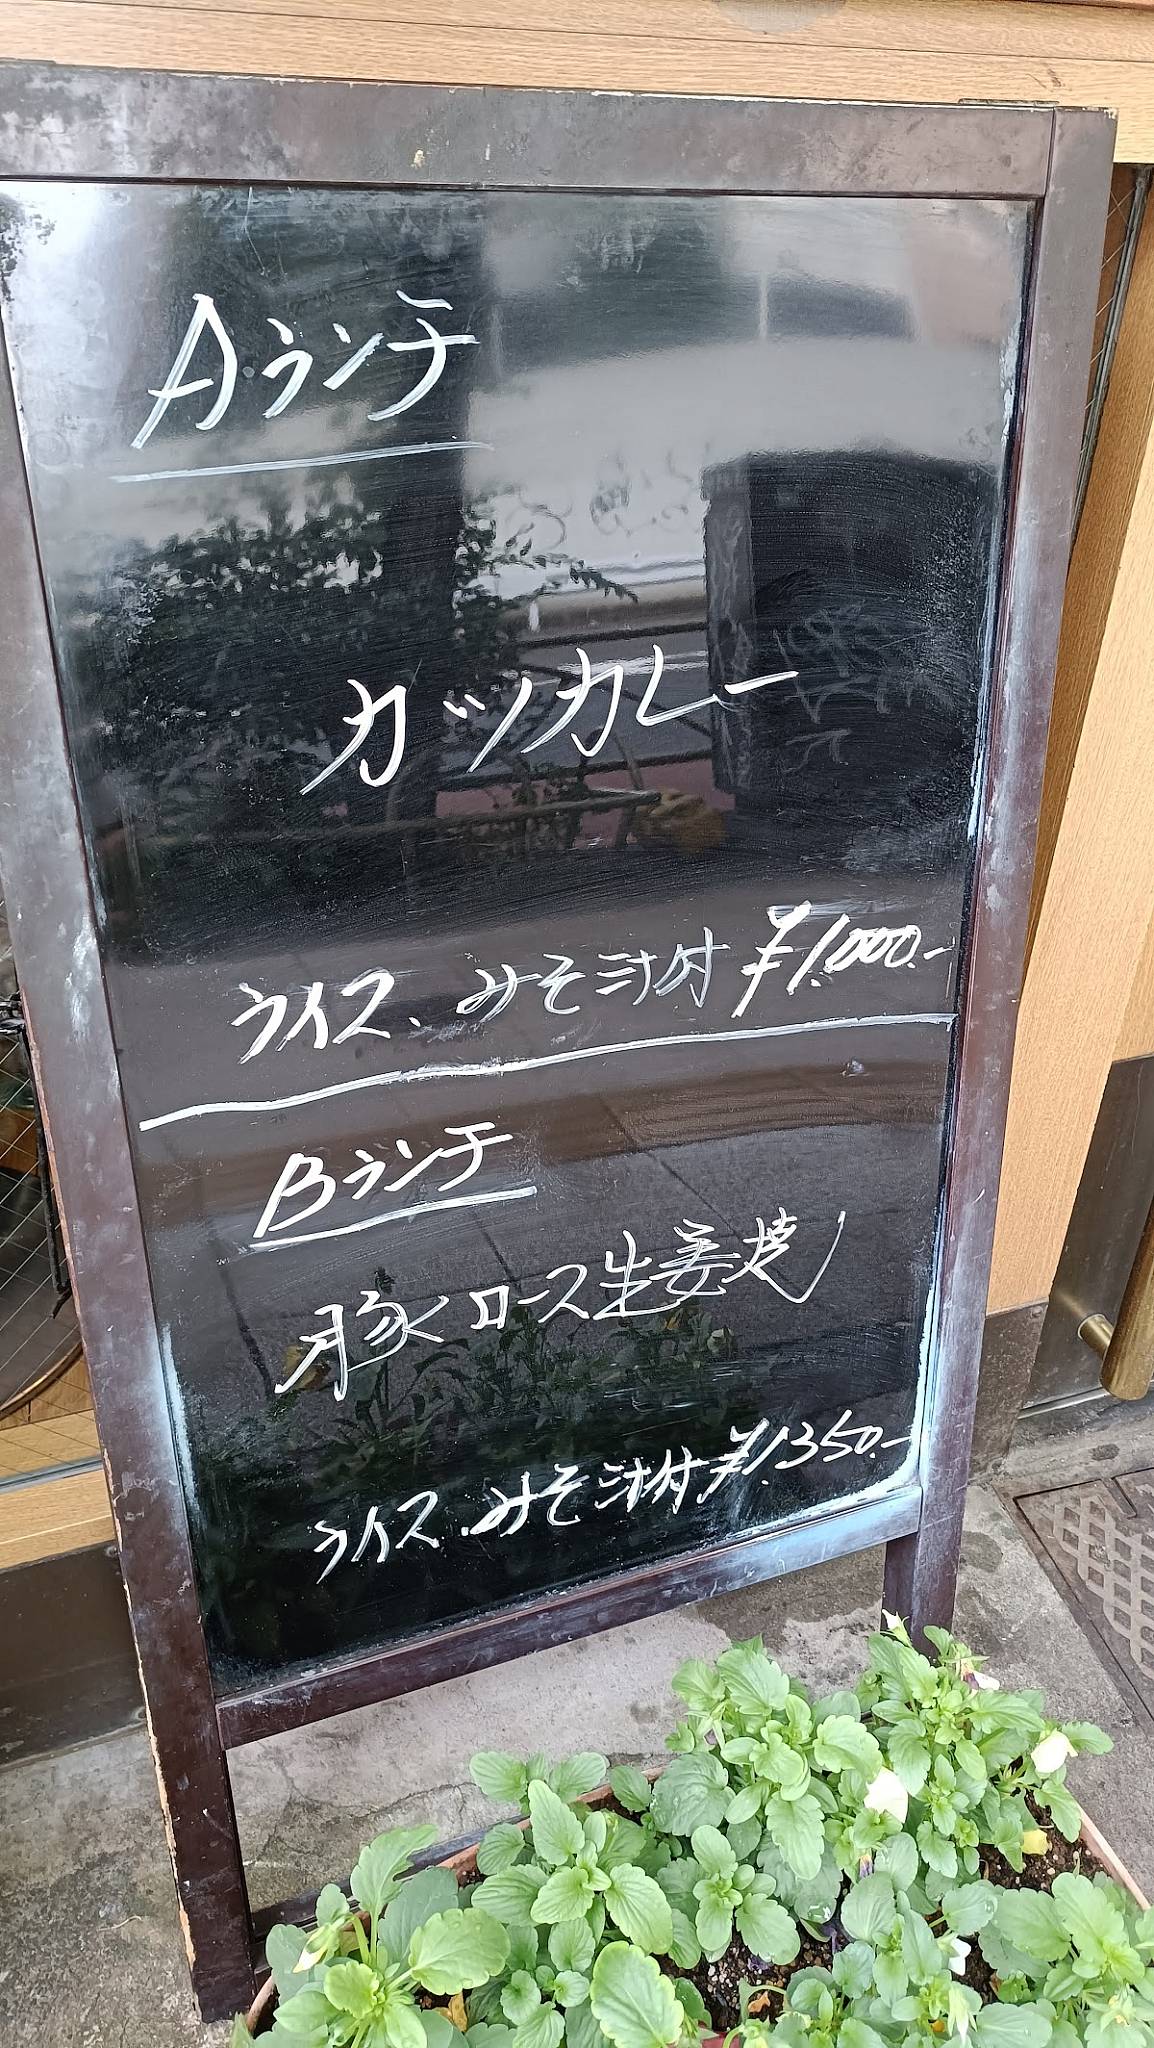 Aランチ
カツカレー
ライス、みそ汁付 ¥1.000.-
Bランチ
豚ロース生姜焼
ライス、みそ汁付 ¥1.350.-